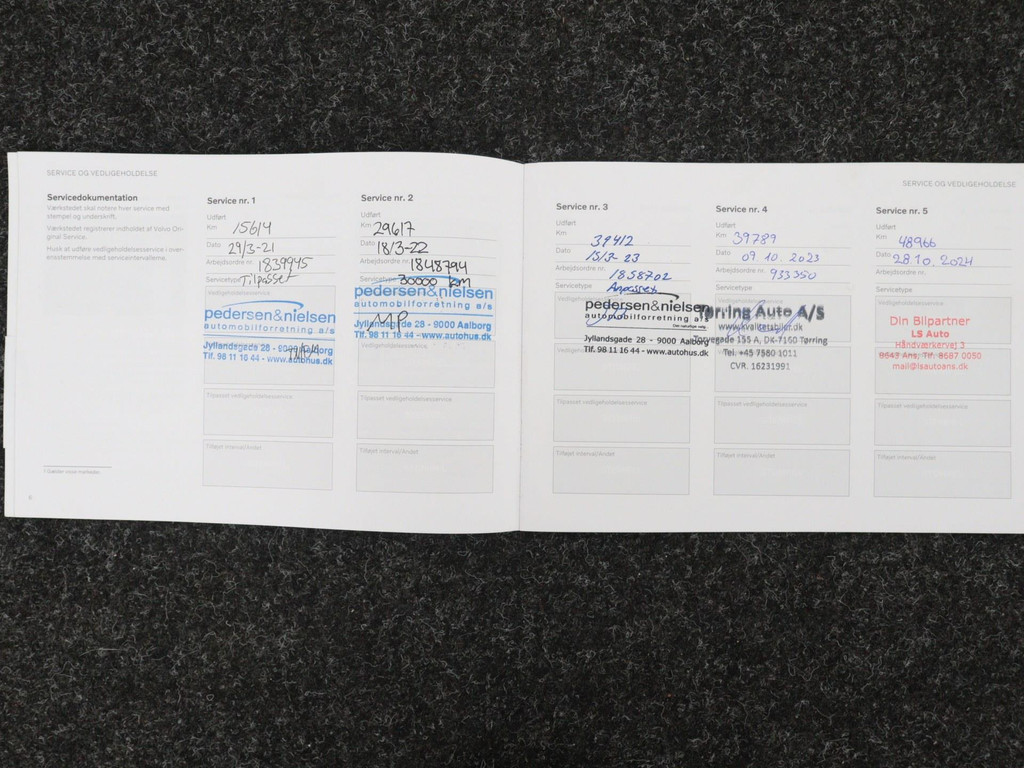 SERVICE OG VEDLIGEHOLDELSE
Servicedokumentation
Værkstedet skal notere hver service med
stempel og underskrift.
Værkstedet registrerer indholdet af Volvo Ori-
ginal Service.
Husk at udføre vedligeholdelsesservice i over-
ensstemmelse med serviceintervallerne.
6
Service nr. 1
Udført
Km 15614
Dato 29/3-21
Arbejdsordre nr. 1839945
Servicetype Tilpasset
Vedligeholdelsesservice
pedersen&nielsen
automobilforretning a/s
Jyllandsgade 28 - 9000 Aalborg
Tlf. 98 11 16 44 - www.autohus.dk
Tilpasset vedligeholdelsesservice
Tilføjet interval/Andet
Service nr. 2
Udført
Km 29617
Dato 18/3-22
Arbejdsordre nr. 1848794
Servicetype 30000 km
pedersen&nielsen
automobilforretning a/s
MP
Jyllandsgade 28 - 9000 Aalborg
Tlf. 98 11 16 44 - www.autohus.dk
Tilpasset vedligeholdelsesservice
Tilføjet interval/Andet
SERVICE OG VEDLIGEHOLDELSE
Service nr. 3
Udført
Km 39412
Dato 23
Arbejdsordre nr. 1858702
Servicetype
pedersen&nielsen
automobilforretning a/s
Jyllandsgade 28 - 9000 Aalborg
Tlf. 98 11 16 44 - www.autohus.dk
Tilpasset vedligeholdelsesservice
Tilføjet interval/Andet
Service nr. 4
Udført
Km 39789
Dato 09 10. 2023
Arbejdsordre nr. 933350
Servicetype
Tørring Auto A/S
www.kvalitetsbiler.dk
Torvegade 155 A, DK-7160 Tørring
Tel. +45 7580 1011
CVR. 16231991
Tilpasset vedligeholdelsesservice
Tilføjet interval/Andet
Service nr. 5
Udført
Km 48966
Dato 28.10.2024
Arbejdsordre nr.
Servicetype
Din Bilpartner
LS Auto
Håndværkervej 3
8643 Ans, Tlf. 8687 0050
mail@lsautoans.dk
Tilpasset vedligeholdelsesservice
Tilføjet interval/Andet